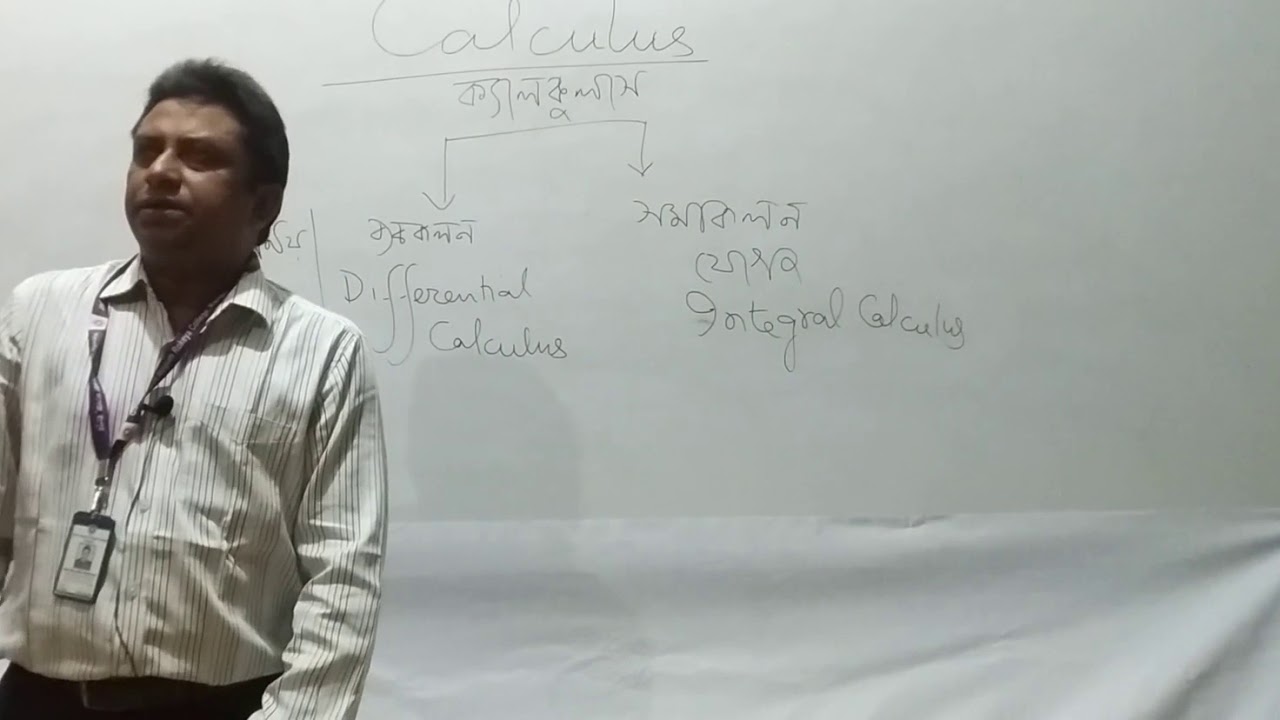 Calculus
ক্যালকুলাস
সমাকলন
Differential
Calculus
যোগজ
Integral Calculus